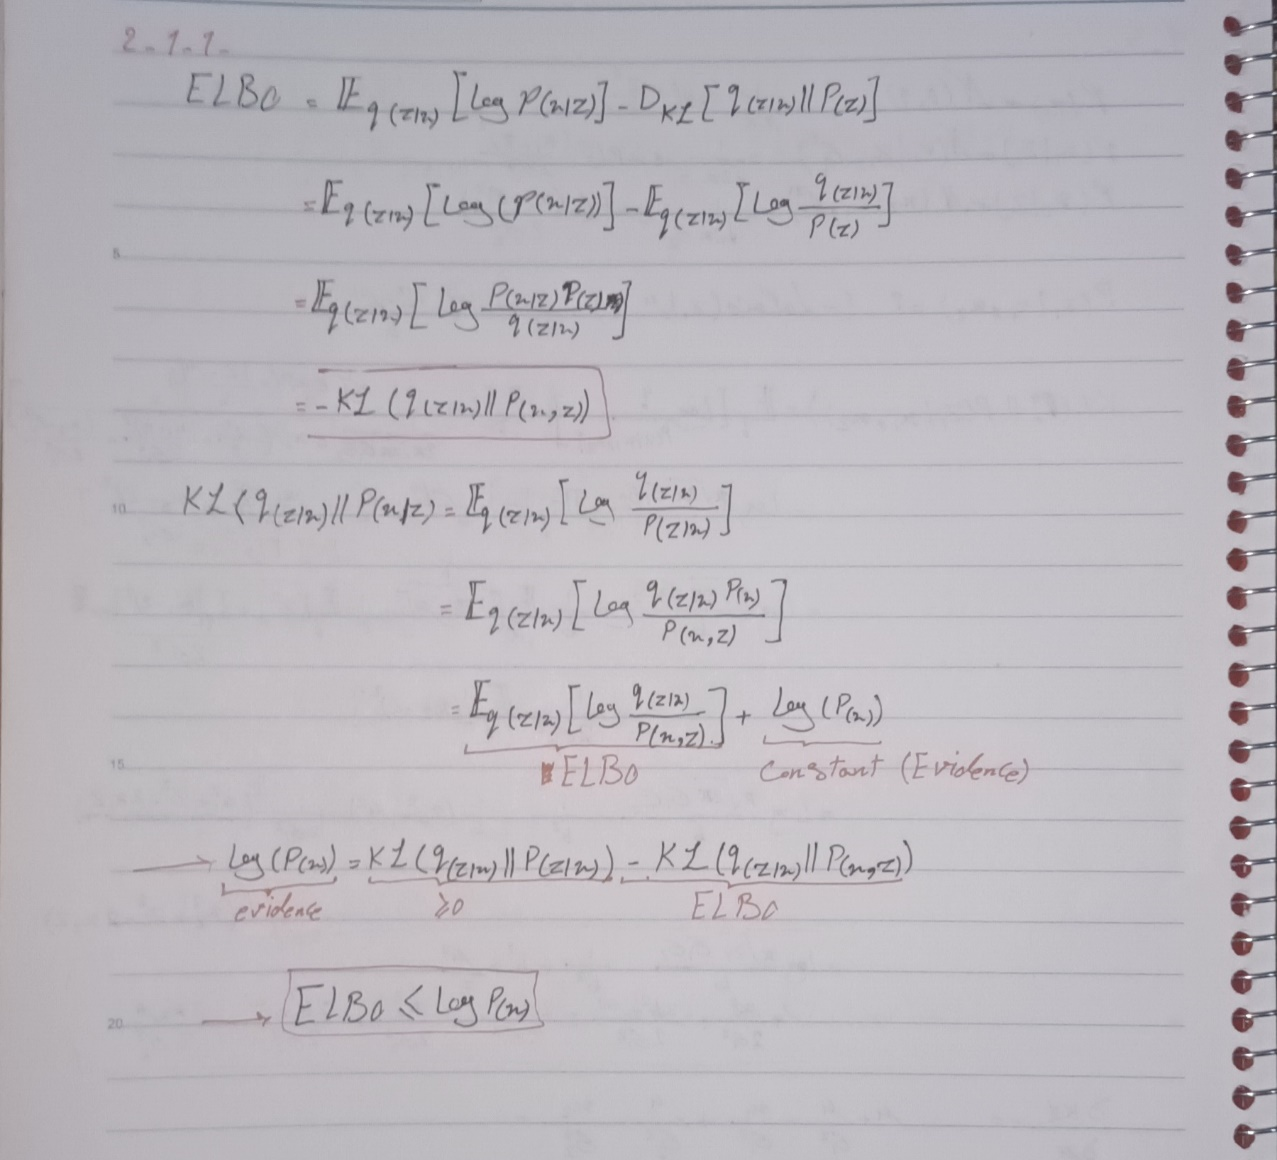 2.1.1.
ELBO = 𝔼q(z|x) [log P(x|z)] - D_KL [q(z|x) || P(z)]
= 𝔼q(z|x) [Log (P(x|z))] - 𝔼q(z|x) [Log q(z|x) / P(z)]
5
= 𝔼q(z|x) [Log P(x|z) P(z) / q(z|x)]
= - KL (q(z|x) || P(x,z))
10 KL (q(z|x) || P(x|z) = 𝔼q(z|x) [Log q(z|x) / P(z|x)]
= 𝔼q(z|x) [Log q(z|x) P(x) / P(x,z)]
= 𝔼q(z|x) [Log q(z|x) / P(x,z)] + Log (P(x))
15 ELBO constant (Evidence)
→ Log (P(x)) = KL (q(z|x) || P(z|x)) - KL (q(z|x) || P(x,z))
evidence ≥0 ELBO
20 → ELBO ≤ Log P(x)